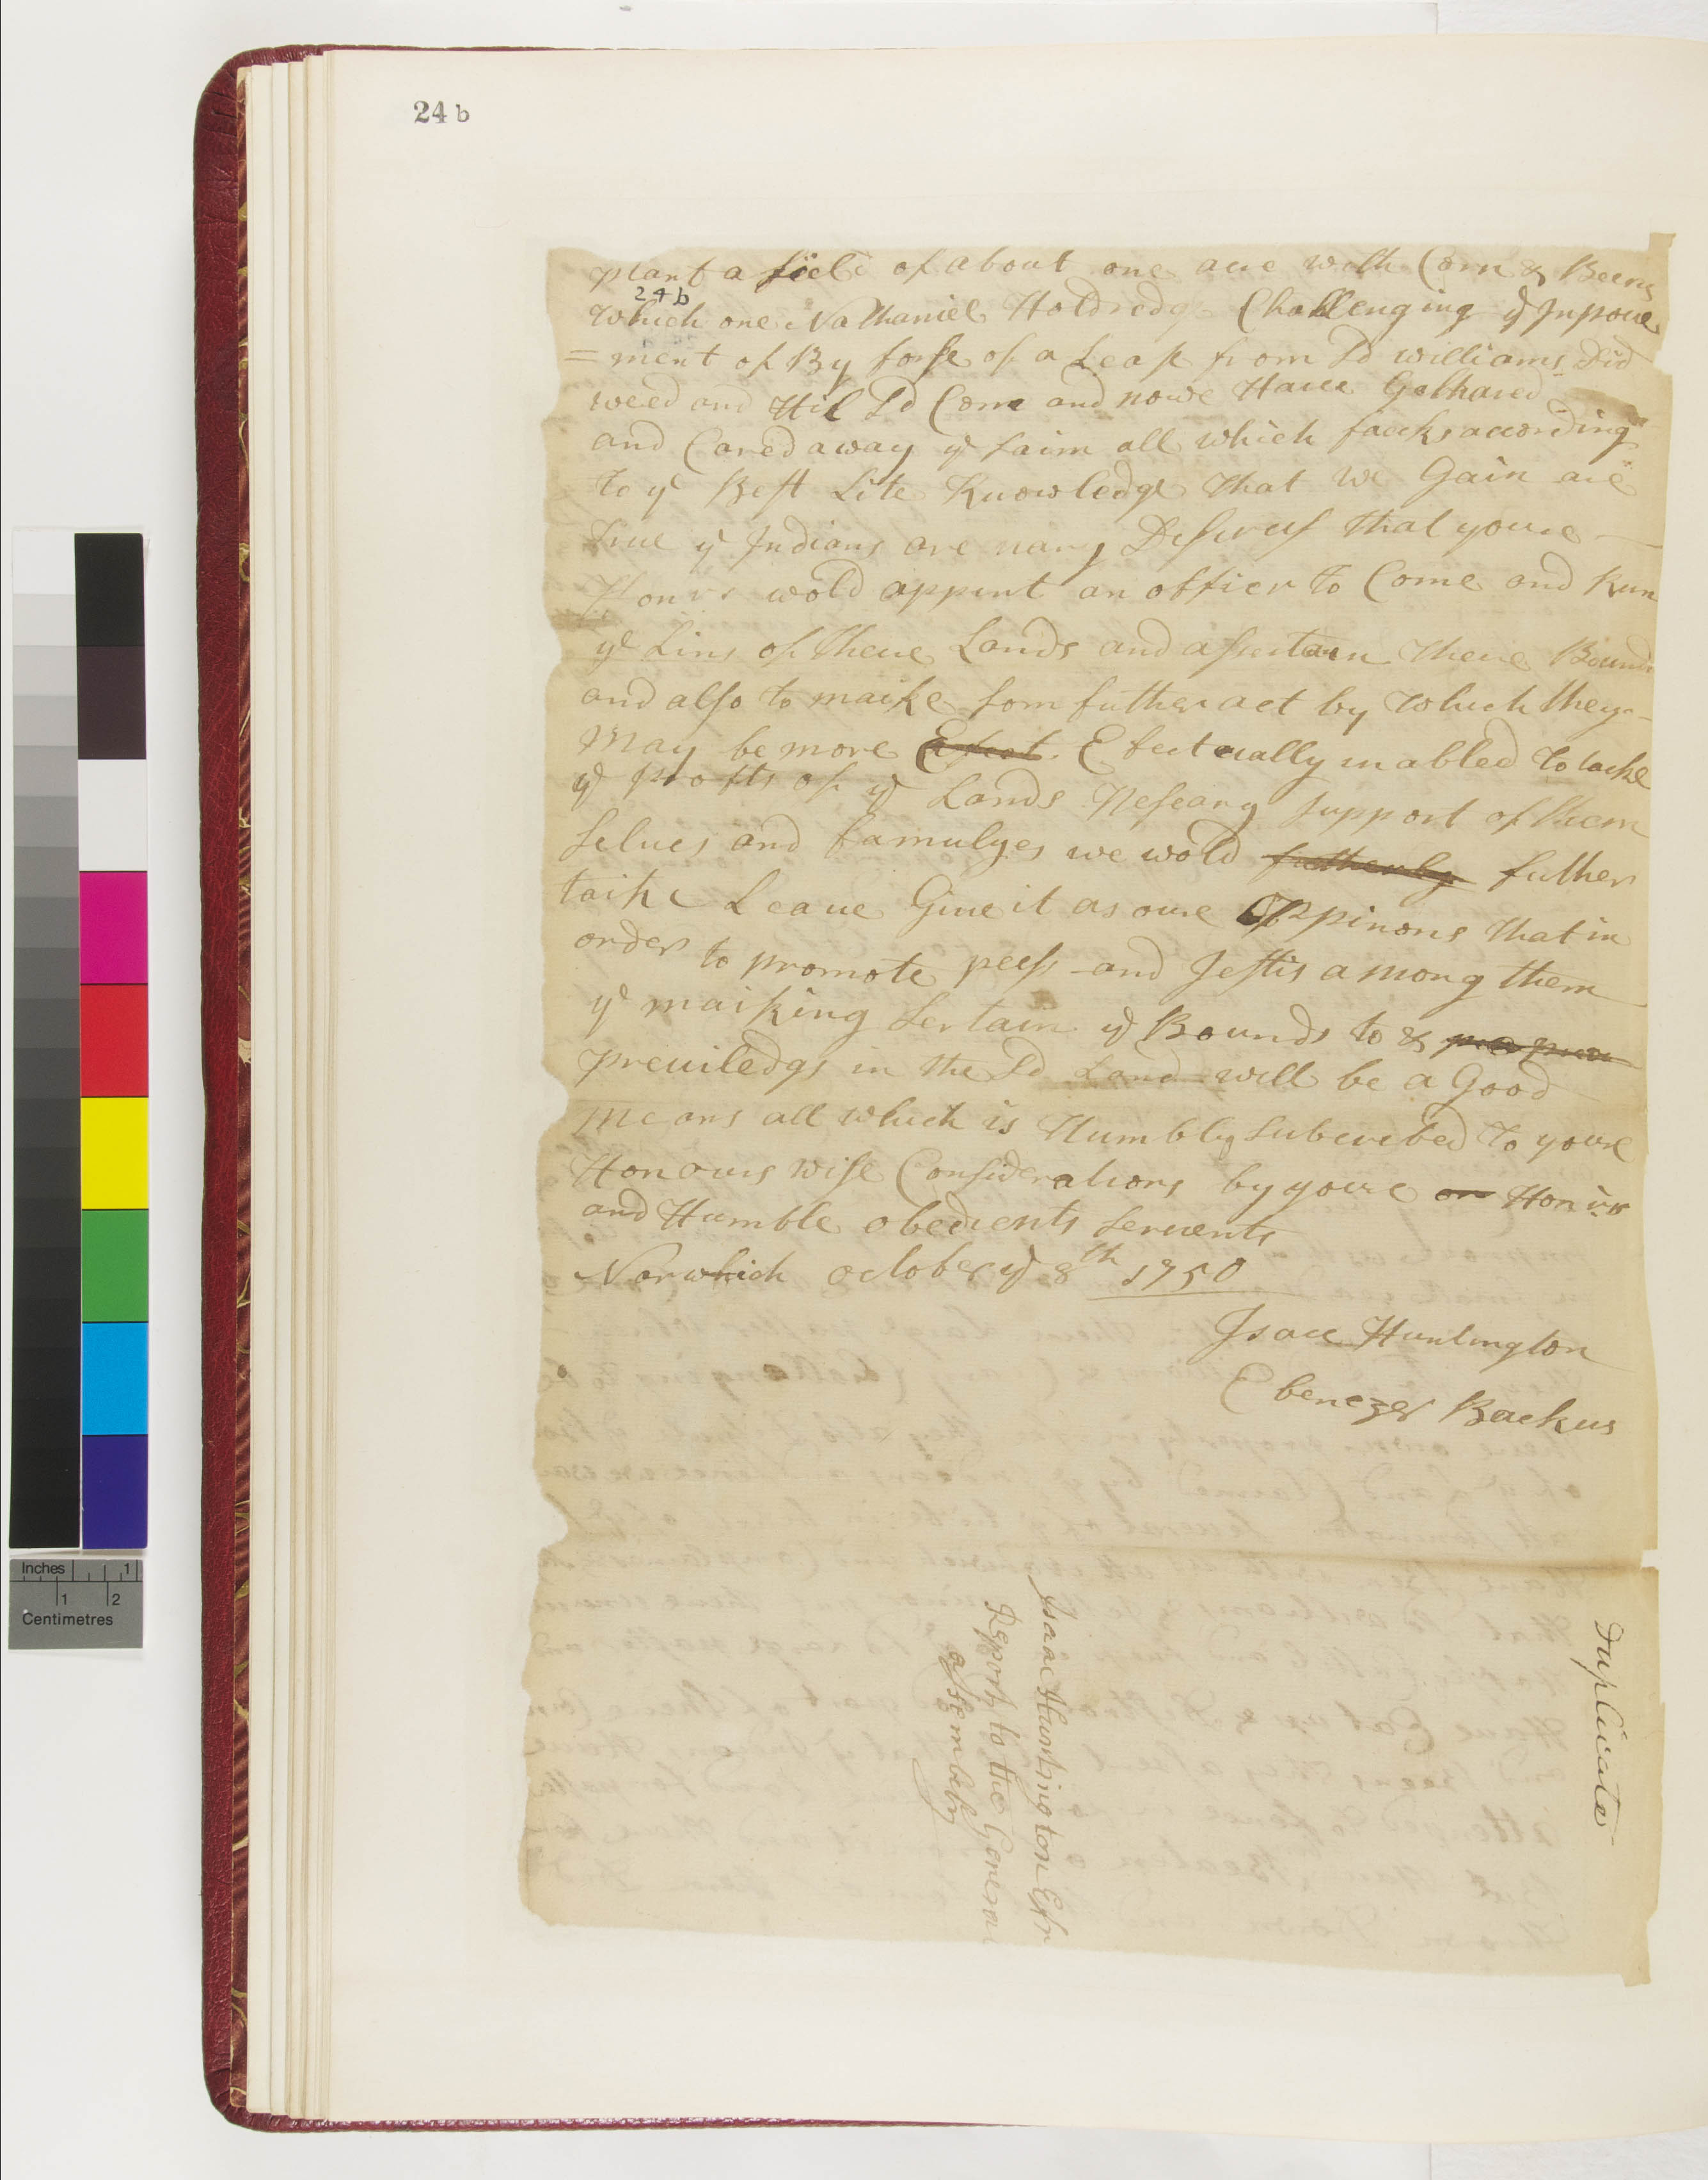 24 b
plant a field of about one acre with Corn & Beens
24b
which one Nathaniel Holdredg Challenging ye Inprove
=ment of By forse of a Leas from Sd williams Did
weed and Hil Sd Corn and nowe Have Gathared
and Cared away ye saim all which facks according
to ye Best Lite Knowledge that we Gain are
true ye Indians are vary Desireus that youre
Honrs wold appint an officer to Come and Run
ye Lins of there Lands and assertain there Bounds
and also to maike som futher act by which they
May be more Efect Efectually inabled to take
ye profits of ye Lands Neseary support of them
selves and famulyes we wold futherly futher
taike Leave Give it as oure Oppinons that in
order to promote pees and Jestis among them
ye maiking sertain ye Bounds to &
previledgs in the Sd Land will be a Good
Means all which is Humbly subscribed to youre
Honours wise Considerations by youre on Honirs
and Humble obedients servents
Norwhich october ye 8th 1750
Isace Huntington
Ebenezer Backus
Isaac Huntington Esqr
Report to the General
assembely
Duplicate
Inches 1
1 2
Centimetres